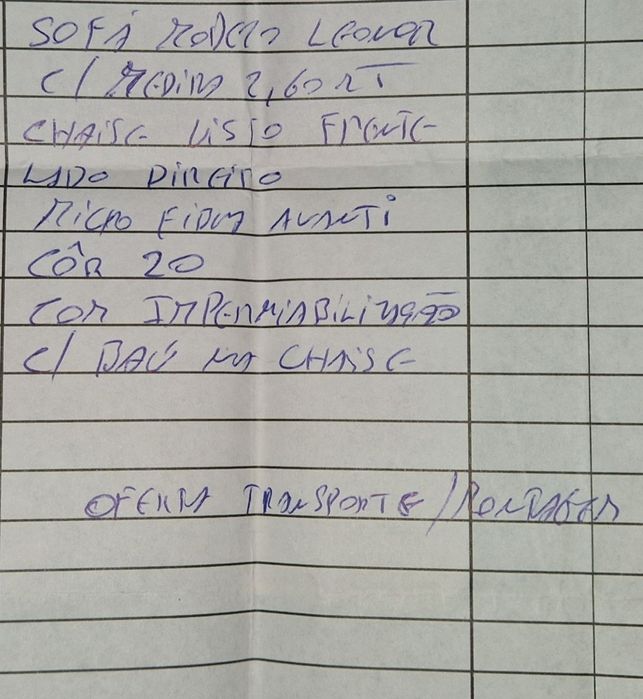 SOFÁ MODELO LEONOR
C/ MEDIDA 2,60 MT
CHAISE VISTO FRENTE
LADO DIREITO
MICRO FIBRA AVANTI
CÔR 20
COM IMPERMIABILIZAÇÃO
C/ BAÚ NA CHAISE
OFERTA TRANSPORTE / MONTAGEM